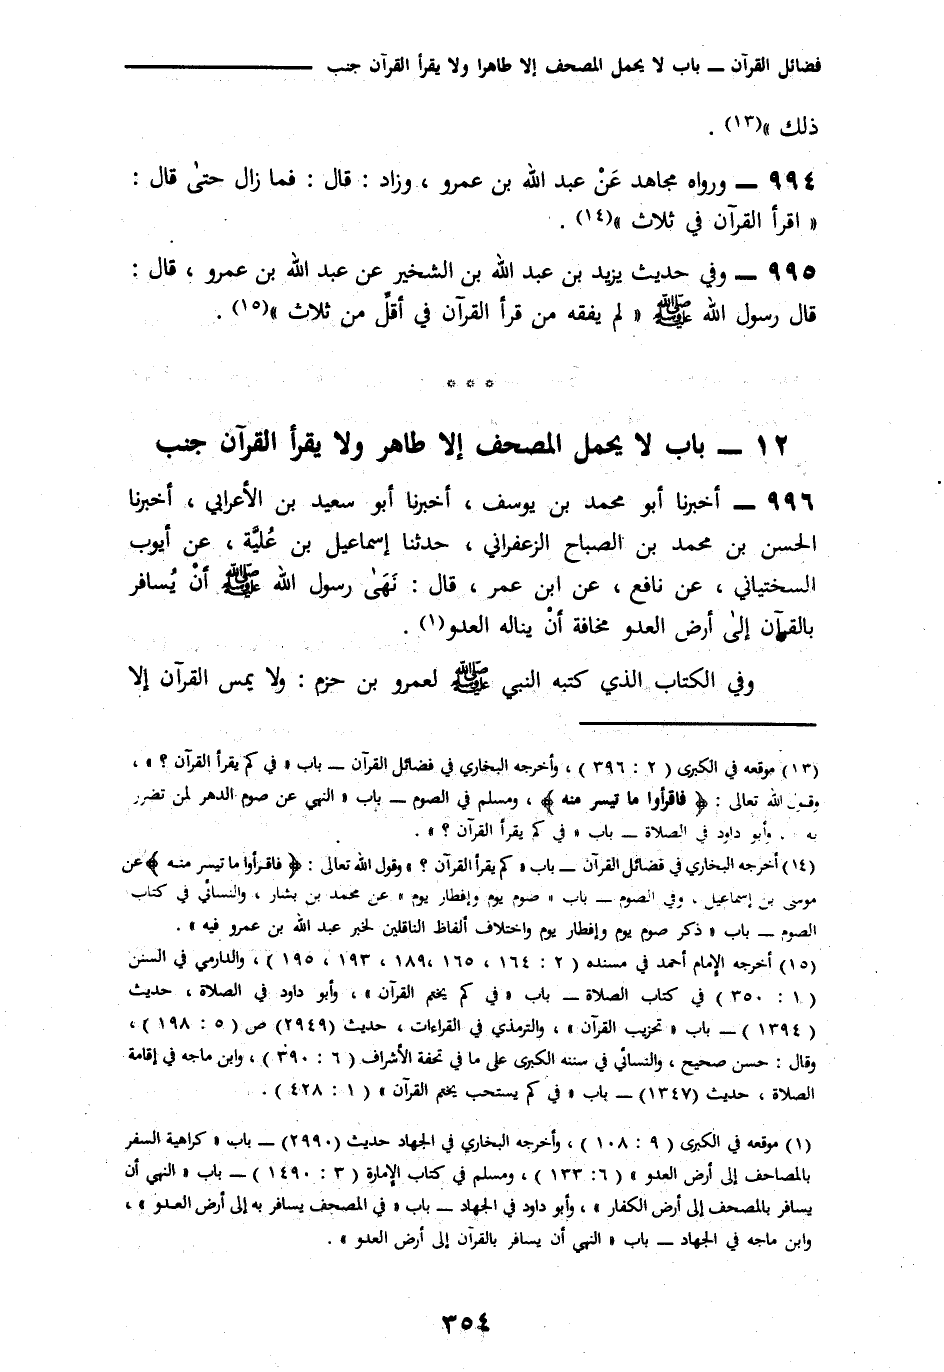 فضائل القرآن ــ باب لا يحمل المصحف إلا طاهرا ولا يقرأ القرآن جنب
ذلك »(١٣) .
٩٩٤ ــ ورواه مجاهد عَنْ عبد الله بن عمرو ، وزاد : قال : فما زال حتىٰ قال :
« اقرأ القرآن في ثلاث »(١٤) .
٩٩٥ ــ وفي حديث يزيد بن عبد الله بن الشخير عن عبد الله بن عمرو ، قال :
قال رسول الله ﷺ « لم يفقه من قرأ القرآن في أقلِّ من ثلاث »(١٥) .
* * *
١٢ ــ باب لا يحمل المصحف إلا طاهر ولا يقرأ القرآن جنب
٩٩٦ ــ أخبرنا أبو محمد بن يوسف ، أخبرنا أبو سعيد بن الأعرابي ، أخبرنا
الحسن بن محمد بن الصباح الزعفراني ، حدثنا إسماعيل بن عُليَّة ، عن أيوب
السختياني ، عن نافع ، عن ابن عمر ، قال : نَهَىٰ رسول الله ﷺ أنْ يُسافر
بالقرآن إلىٰ أرض العدو مخافة أنْ يناله العدو(١) .
وفي الكتاب الذي كتبه النبي ﷺ لعمرو بن حزم : ولا يمس القرآن إلا
(١٣) موقعه في الكبرى ( ٢ : ٣٩٦ ) ، وأخرجه البخاري في فضائل القرآن ــ باب « في كم يقرأ القرآن ؟ » ،
وقول الله تعالى : ﴿ فاقرأوا ما تيسر منه ﴾ ، ومسلم في الصوم ــ باب « النهي عن صوم الدهر لمن تضرر
به . وأبو داود في الصلاة ــ باب « في كم يقرأ القرآن ؟ » .
(١٤) أخرجه البخاري في فضائل القرآن ــ باب « كم يقرأ القرآن ؟ » وقول الله تعالى : ﴿ فاقرأوا ما تيسر منه ﴾ عن
موسى بن إسماعيل ، وفي الصوم ــ باب « صوم يوم وإفطار يوم » عن محمد بن بشار ، والنسائي في كتاب
الصوم ــ باب « ذكر صوم يوم وإفطار يوم واختلاف ألفاظ الناقلين لخبر عبد الله بن عمرو فيه » .
(١٥) أخرجه الإمام أحمد في مسنده ( ٢ : ١٦٤ ، ١٦٥ ،١٨٩ ، ١٩٣ ، ١٩٥ ) ، والدارمي في السنن
( ١ : ٣٥٠ ) في كتاب الصلاة ــ باب « في كم يختم القرآن » ، وأبو داود في الصلاة ، حديث
( ١٣٩٤ ) ــ باب « تحزيب القرآن » ، والترمذي في القراءات ، حديث (٢٩٤٩) ص ( ٥ : ١٩٨ ) ،
وقال : حسن صحيح ، والنسائي في سننه الكبرى على ما في تحفة الأشراف ( ٦ : ٣٩٠ ) ، وابن ماجه في إقامة
الصلاة ، حديث (١٣٤٧) ــ باب « في كم يستحب يختم القرآن » ( ١ : ٤٢٨ ) .
(١) موقعه في الكبرى ( ٩ : ١٠٨ ) ، وأخرجه البخاري في الجهاد حديث (٢٩٩٠) ــ باب « كراهية السفر
بالمصاحف إلى أرض العدو » ( ٦: ١٣٣ ) ، ومسلم في كتاب الإمارة ( ٣ : ١٤٩٠ ) ــ باب « النهي أن
يسافر بالمصحف إلى أرض الكفار » ، وأبو داود في الجهاد ــ باب « في المصحف يسافر به إلى أرض العدو » ،
وابن ماجه في الجهاد ــ باب « النهي أن يسافر بالقرآن إلى أرض العدو » .
٣٥٤